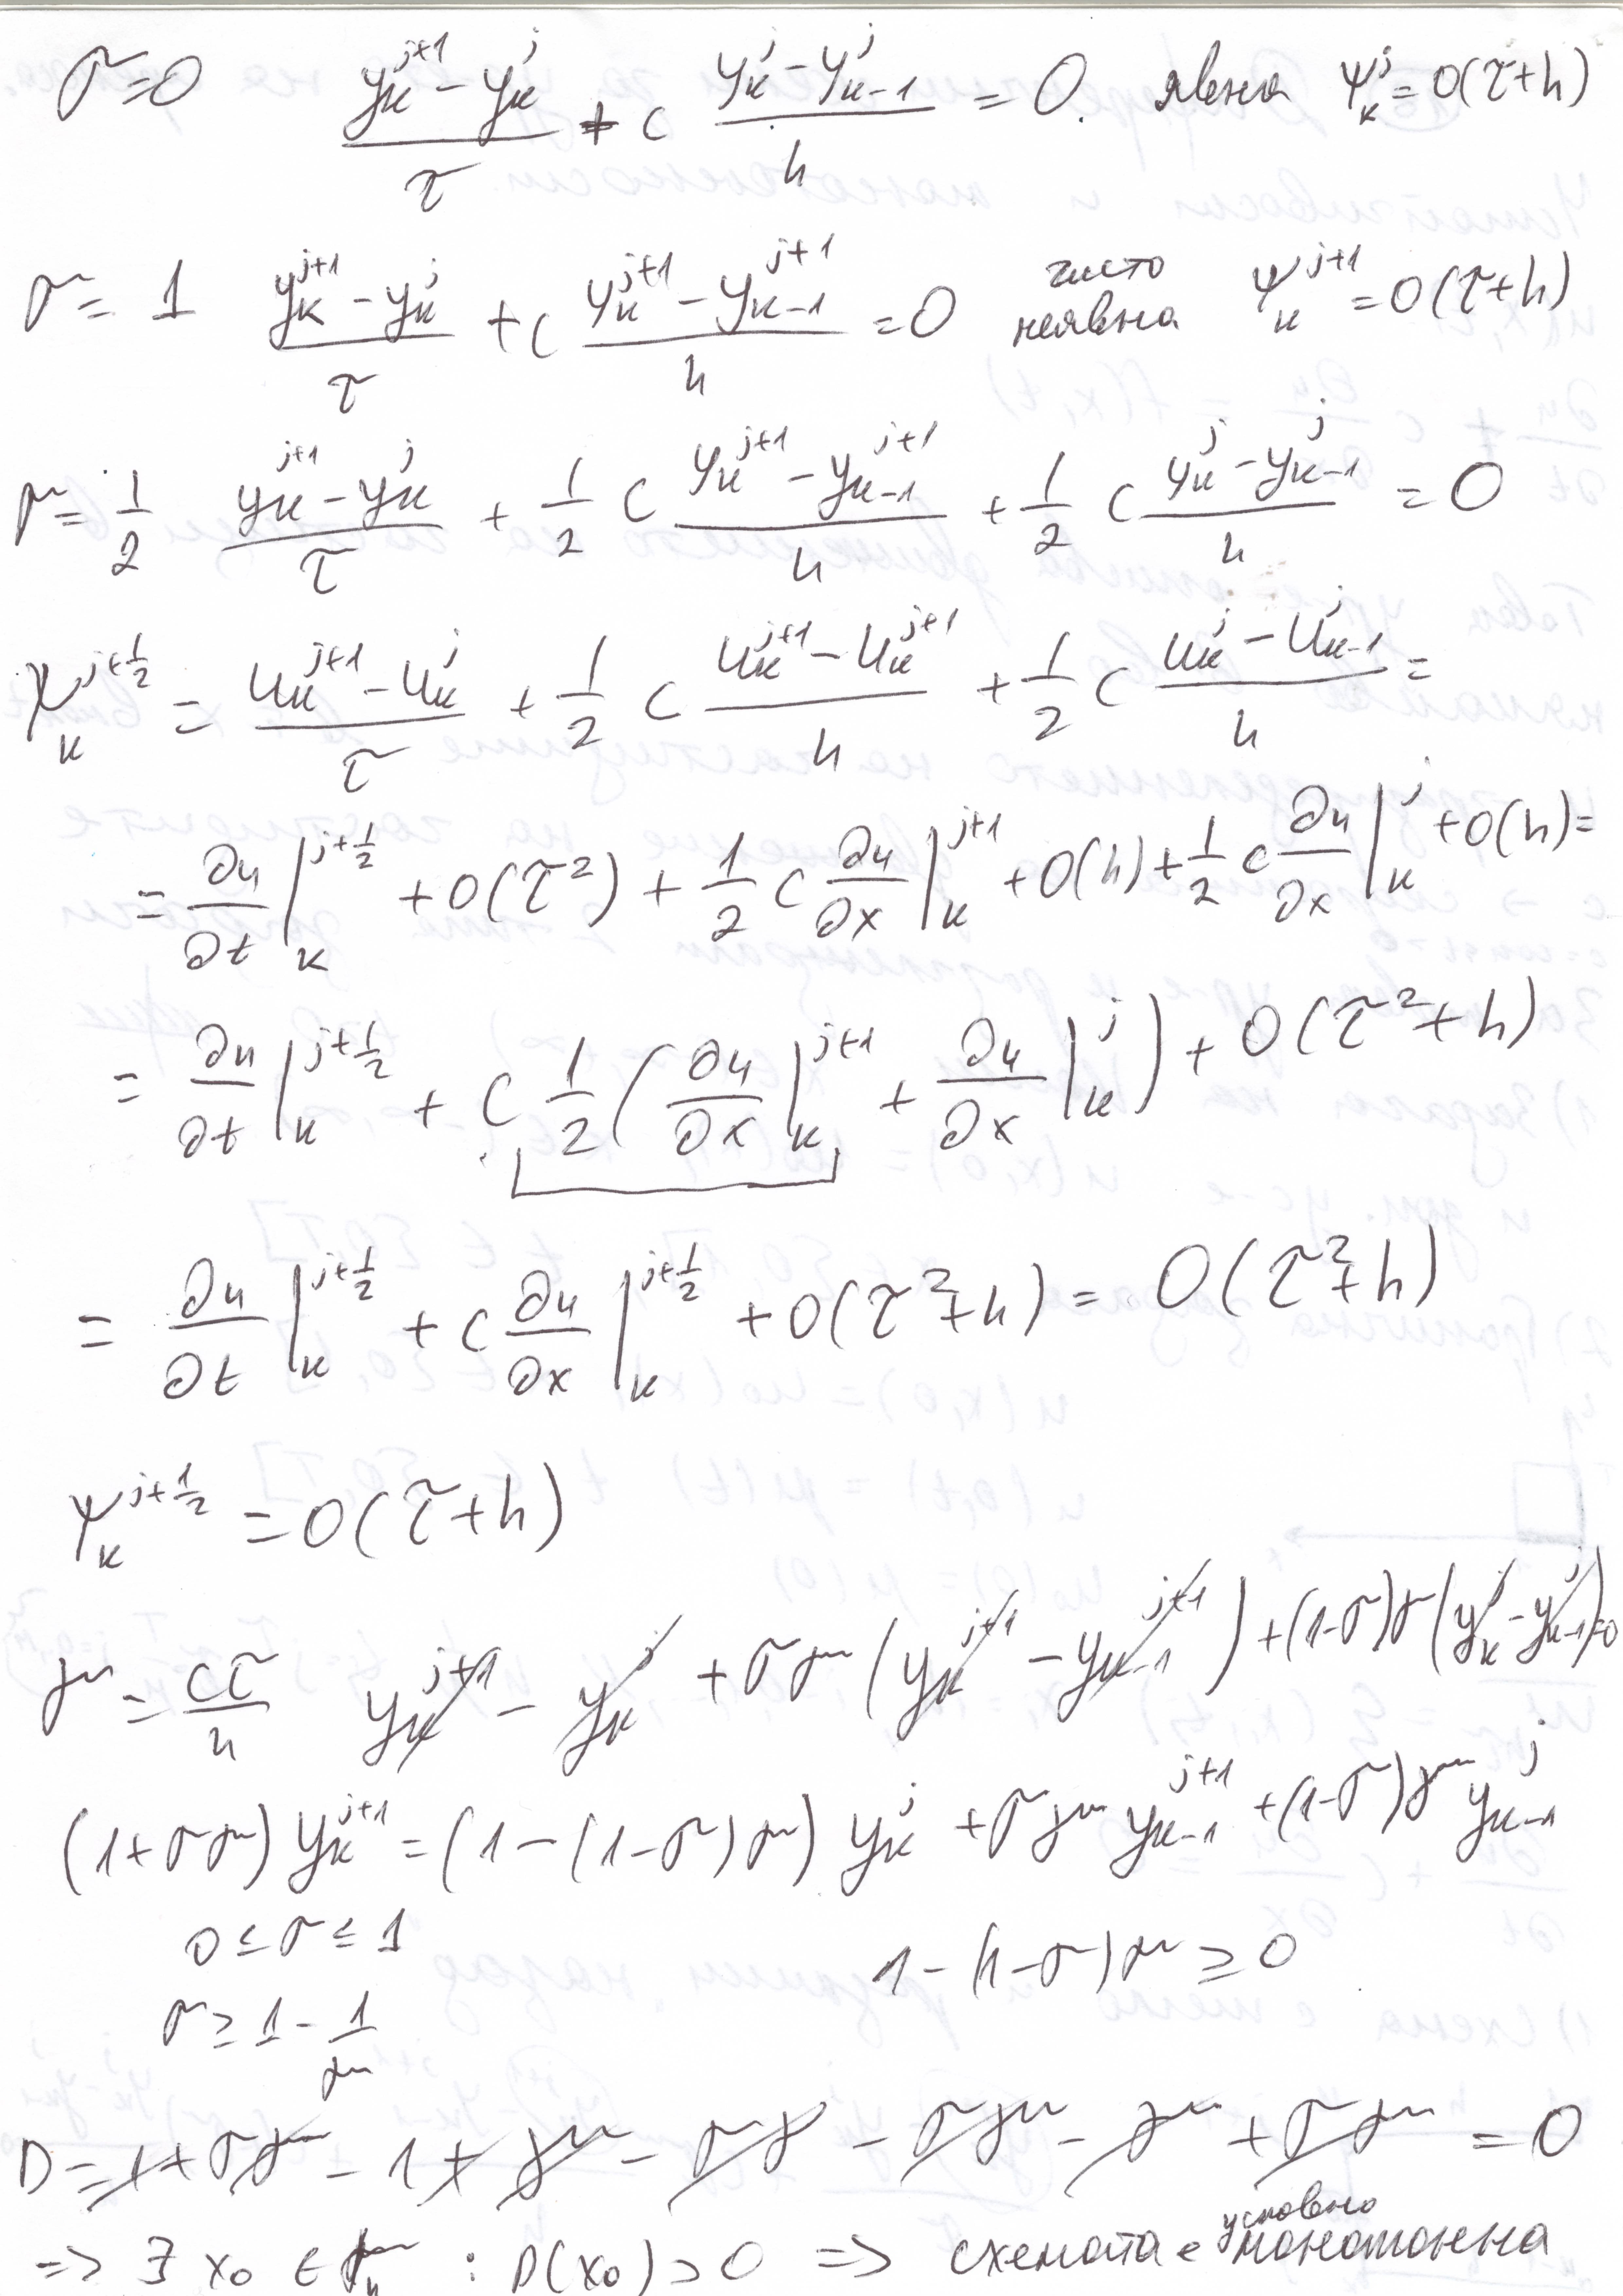 σ=0 (y_k^{j+1} - y_k^j)/τ + c (y_k^j - y_{k-1}^j)/h = 0. явна ψ_k^j = O(τ+h)
σ = 1 (y_k^{j+1} - y_k^j)/τ + c (y_k^{j+1} - y_{k-1}^{j+1})/h = 0 чисто неявна ψ_k^{j+1} = O(τ+h)
σ = 1/2 (y_k^{j+1} - y_k^j)/τ + 1/2 c (y_k^{j+1} - y_{k-1}^{j+1})/h + 1/2 c (y_k^j - y_{k-1}^j)/h = 0
ψ_k^{j+1/2} = (u_k^{j+1} - u_k^j)/τ + 1/2 c (u_k^{j+1} - u_k^{j+1})/h + 1/2 c (u_k^j - u_{k-1}^j)/h =
= ∂u/∂t |_k^{j+1/2} + O(τ²) + 1/2 c ∂u/∂x |_k^{j+1} + O(h) + 1/2 c ∂u/∂x |_k^j + O(h) =
= ∂u/∂t |_k^{j+1/2} + c 1/2 (∂u/∂x |_k^{j+1} + ∂u/∂x |_k^j) + O(τ²+h)
= ∂u/∂t |_k^{j+1/2} + c ∂u/∂x |_k^{j+1/2} + O(τ²+h) = O(τ²+h)
ψ_k^{j+1/2} = O(τ+h)
γ = cτ/h y_k^{j+1} - y_k^j + σγ (y_k^{j+1} - y_{k-1}^{j+1}) + (1-σ)γ (y_k^j - y_{k-1}^j) = 0
(1+σγ) y_k^{j+1} = (1-(1-σ)γ) y_k^j + σγ y_{k-1}^{j+1} + (1-σ)γ y_{k-1}^j
0 ≤ σ ≤ 1 1-(1-σ)γ ≥ 0
σ ≥ 1 - 1/γ
D = 1 + σγ - 1 + γ - σγ - σγ - γ + σγ = 0
=> ∃ x₀ ∈ : D(x₀) > 0 => схемата е условно монотонна